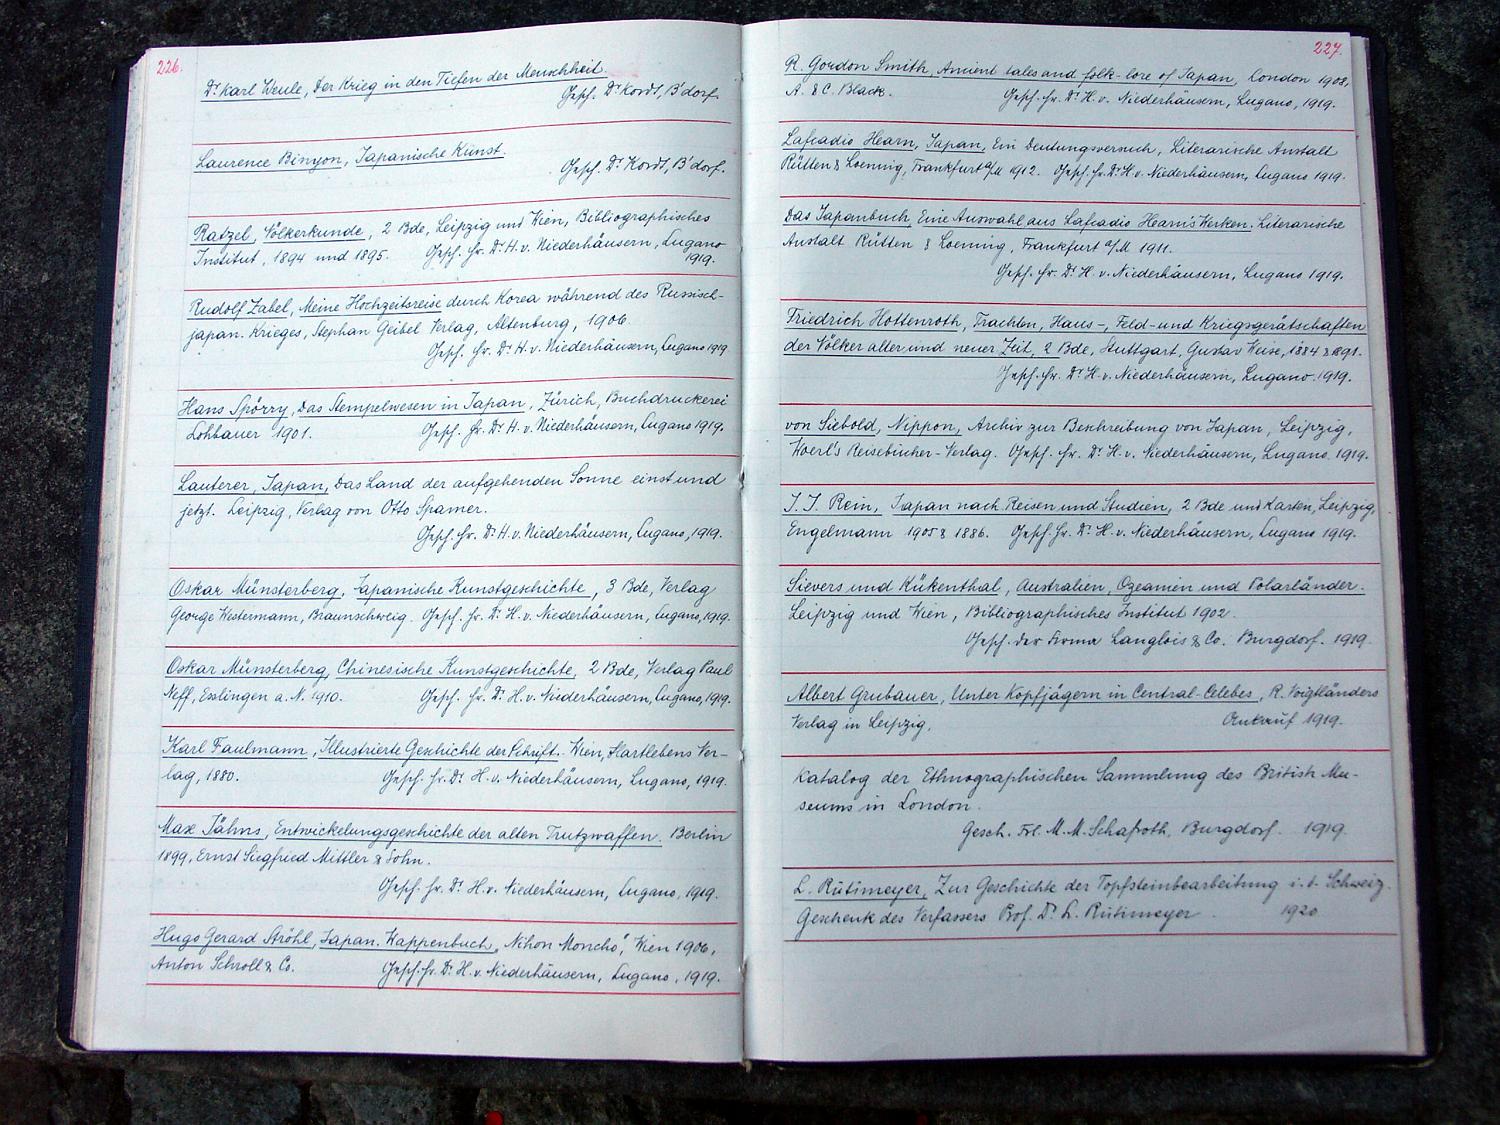 226.
Dr. Karl Weule, Der Krieg in den Tiefen der Menschheit.
Gesch. Dr. Kordt, B'dorf.
Laurence Binyon, Japanische Kunst.
Gesch. Dr. Kordt, B'dorf.
Ratzel, Völkerkunde, 2 Bde, Leipzig und Wien, Bibliographisches
Institut, 1894 und 1895. Gesch. Hr. Dr. H. v. Niederhäusern, Lugano
1919.
Rudolf Zabel, Meine Hochzeitsreise durch Korea während des Russisch-
japan. Krieges, Stephan Geibel Verlag, Altenburg, 1906.
Gesch. Hr. Dr. H. v. Niederhäusern, Lugano 1919.
Hans Spörry, Das Stempelwesen in Japan, Zürich, Buchdruckerei
Lohbauer 1901. Gesch. Hr. Dr. H. v. Niederhäusern, Lugano 1919.
Lauterer, Japan, Das Land der aufgehenden Sonne einst und
jetzt. Leipzig, Verlag von Otto Spamer.
Gesch. Hr. Dr. H. v. Niederhäusern, Lugano, 1919.
Oskar Münsterberg, Japanische Kunstgeschichte, 3 Bde, Verlag
George Westermann, Braunschweig. Gesch. Hr. Dr. H. v. Niederhäusern, Lugano, 1919.
Oskar Münsterberg, Chinesische Kunstgeschichte, 2 Bde, Verlag Paul
Neff, Esslingen a. N. 1910. Gesch. Hr. Dr. H. v. Niederhäusern, Lugano, 1919.
Karl Faulmann, Illustrierte Geschichte der Schrift. Wien, Hartlebens Ver-
lag, 1880. Gesch. Hr. Dr. H. v. Niederhäusern, Lugano, 1919.
Max Jähns, Entwickelungsgeschichte der alten Trutzwaffen. Berlin
1899, Ernst Siegfried Mittler & Sohn.
Gesch. Hr. Dr. H. v. Niederhäusern, Lugano, 1919.
Hugo Gerard Ströhl, Japan. Wappenbuch „Nihon Moncho", Wien 1906,
Anton Schroll & Co. Gesch. Hr. Dr. H. v. Niederhäusern, Lugano, 1919.
227.
R. Gordon Smith, Ancient tales and folk-lore of Japan, London 1908,
A. & C. Black. Gesch. Hr. Dr. H. v. Niederhäusern, Lugano, 1919.
Lafcadio Hearn, Japan, Ein Deutungsversuch, Literarische Anstalt
Rütten & Loening, Frankfurt a/M 1912. Gesch. Hr. Dr. H. v. Niederhäusern, Lugano 1919.
Das Japanbuch, Eine Auswahl aus Lafcadio Hearn's Werken. Literarische
Anstalt Rütten & Loening, Frankfurt a/M 1911.
Gesch. Hr. Dr. H. v. Niederhäusern, Lugano 1919.
Friedrich Hottenroth, Trachten, Haus-, Feld- und Kriegsgerätschaften
der Völker alter und neuer Zeit, 2 Bde, Stuttgart, Gustav Weise, 1884 & 1891.
Gesch. Hr. Dr. H. v. Niederhäusern, Lugano. 1919.
von Siebold, Nippon, Archiv zur Beschreibung von Japan, Leipzig,
Woerl's Reisebücher-Verlag. Gesch. Hr. Dr. H. v. Niederhäusern, Lugano. 1919.
J. J. Rein, Japan nach Reisen und Studien, 2 Bde und Karten, Leipzig,
Engelmann 1905 & 1886. Gesch. Hr. Dr. H. v. Niederhäusern, Lugano 1919.
Sievers und Kükenthal, Australien, Ozeanien und Polarländer.
Leipzig und Wien, Bibliographisches Institut 1902.
Gesch. der Firma Langlois & Co. Burgdorf. 1919.
Albert Grubauer, Unter Kopfjägern in Central-Celebes, R. Voigtländers
Verlag in Leipzig. Ankauf 1919.
Katalog der Ethnographischen Sammlung des British Mu-
seums in London.
Gesch. Frl. M. M. Schafroth, Burgdorf. 1919.
L. Rütimeyer, Zur Geschichte der Topfsteinbearbeitung i. d. Schweiz.
Geschenk des Verfassers Prof. Dr. L. Rütimeyer. 1920